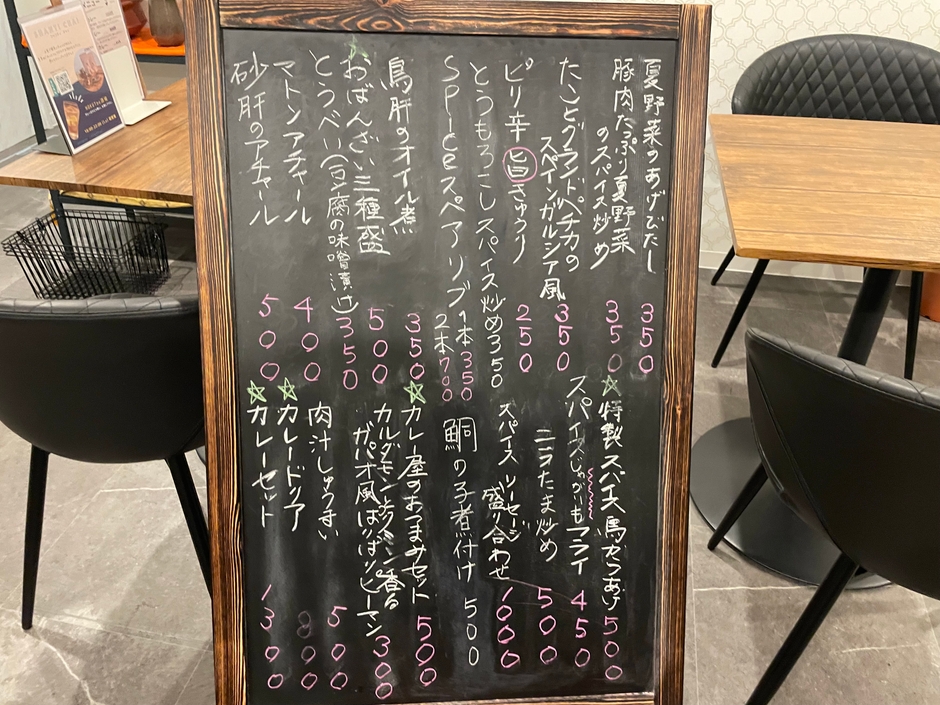 夏野菜のあげびたし 350
豚肉たっぷり夏野菜
のスパイス炒め 350
たことグランドペチカの
スペインガルシア風 350
ピリ辛旨きゅうり 250
とうもろこしスパイス炒め 350
SPiceスペアリブ 1本350
2本700
鳥肝のオイル煮 350
おばんざい三種盛 500
とうべい(豆腐の味噌漬け) 350
マトンアチャール 400
砂肝のアチャール 500
☆特製スパイス鳥からあげ 500
スパイスじゃがいもフライ 450
ニラたま炒め 500
スパイスソーセージ
盛り合わせ 1000
鯛の子煮付け 500
☆カレー屋のおつまみセット 500
カルダモン香る
ガパオ風ぱりぱりピーマン 300
肉汁しゅうまい 500
☆カレードリア 800
☆カレーセット 1300